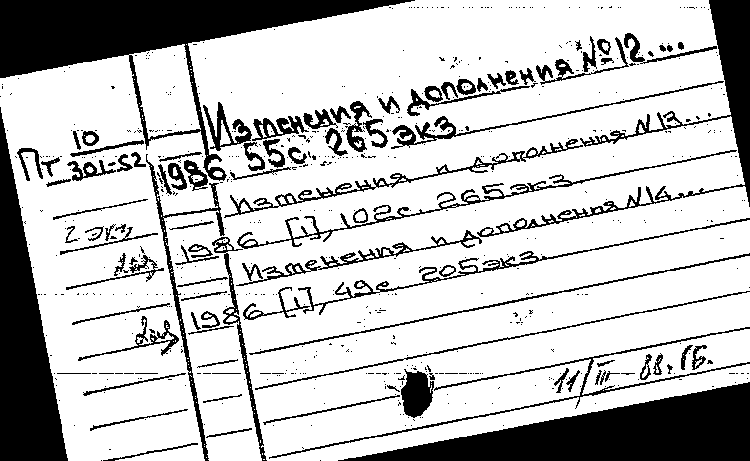 Изменения и дополнения №12....
Пт 10
301-52
1986. 55с. 265экз.
Изменения и дополнения N13...
2 экз,
1986. [1], 102с. 265экз
Изменения и дополнения N14...
2экз
1986 [1], 49с 205экз.
2экз
11/III 88. ГБ.